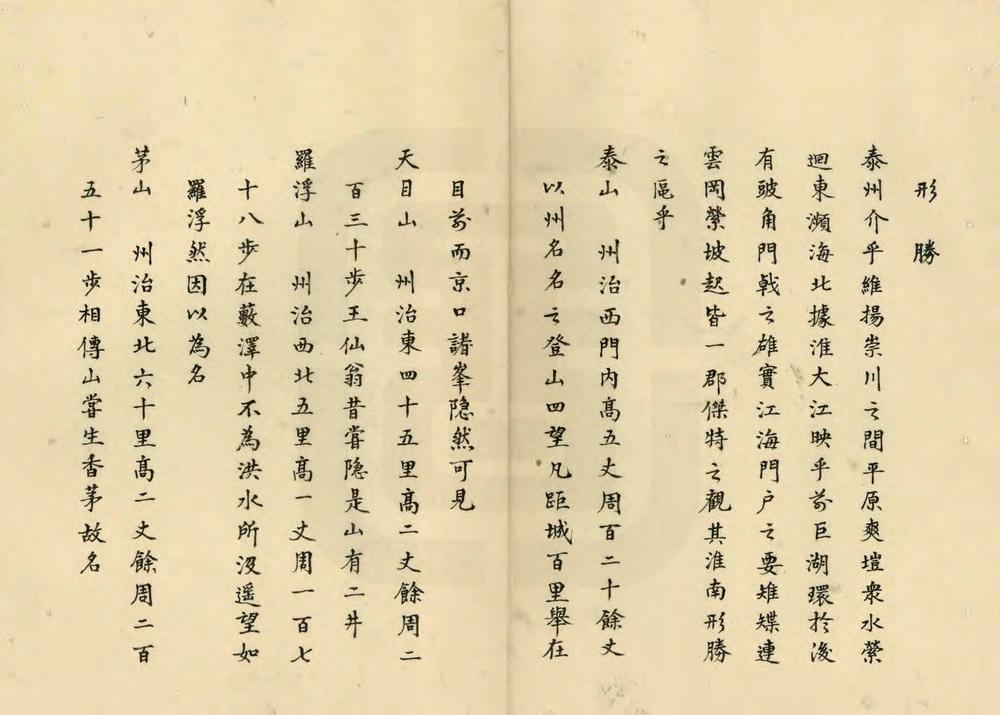 形勝
泰州介乎維揚崇川之間平原爽塏衆水縈
迴東瀕海北據淮大江映乎前巨湖環於後
有皷角門戟之雄實江海門戶之要雉堞連
雲岡縈坡起皆一郡傑特之觀其淮南形勝
之區乎
泰山 州治西門內高五丈周百二十餘丈
以州名名之登山四望凡距城百里舉在
目前而京口諸峯隱然可見
天目山 州治東四十五里高二丈餘周二
百三十步王仙翁昔嘗隐是山有二井
羅浮山 州治西北五里高一丈周一百七
十八步在藪澤中不為洪水所没遥望如
羅浮然因以為名
茅山 州治東北六十里高二丈餘周二百
五十一步相傳山嘗生香茅故名